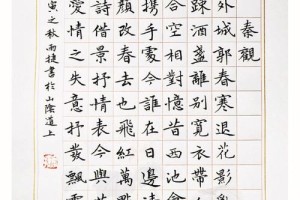 秦觀
外城郭春寒退花影亂
疎酒盞離別寬衣帶人
合空相對憶昔西池會
攜手處今誰在日邊清
顏改春去也飛紅萬點
詩借景抒情表今與昔
愛情之失意抒發飄零
寅之秋雨捷書於山陰道上